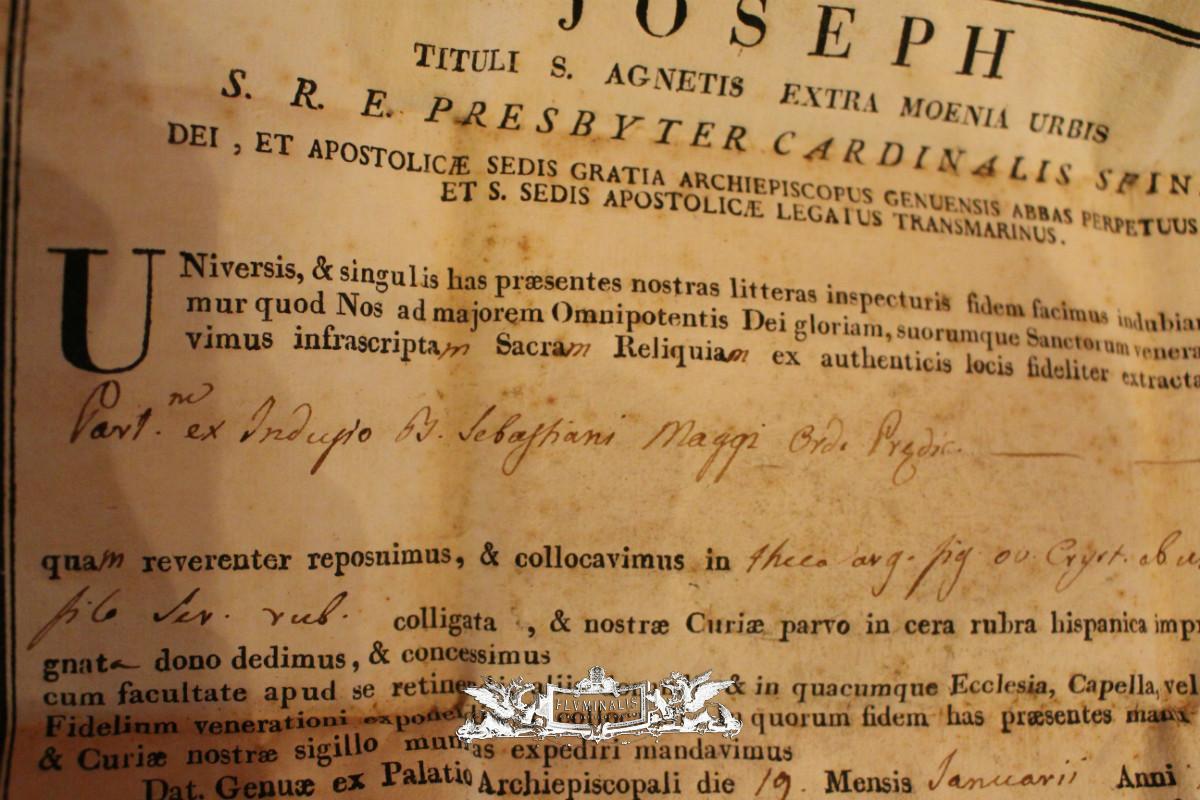 JOSEPH
TITULI S. AGNETIS EXTRA MOENIA URBIS
S. R. E. PRESBYTER CARDINALIS SPIN
DEI, ET APOSTOLICÆ SEDIS GRATIA ARCHIEPISCOPUS GENUENSIS ABBAS PERPETUUS
ET S. SEDIS APOSTOLICÆ LEGATUS TRANSMARINUS.
UNiversis, & singulis has præsentes nostras litteras inspecturis fidem facimus indubiam
mur quod Nos ad majorem Omnipotentis Dei gloriam, suorumque Sanctorum venera
vimus infrascriptam Sacram Reliquiam ex authenticis locis fideliter extracta
Part.ne ex Indusio B. Sebastiani Maggi Ord. Prędic.
quam reverenter reposuimus, & collocavimus in theca arg. fig ov. Cryst. ab u
filo Ser. rub. colligata, & nostræ Curiæ parvo in cera rubra hispanica impr
gnata dono dedimus, & concessimus
cum facultate apud se & in quacumque Ecclesia, Capella, vel
Fidelium venerationi quorum fidem has præsentes manu
& Curiæ nostræ sigillo expediri mandavimus
Dat. Genuæ ex Palatio Archiepiscopali die 19 Mensis Januarii Anni
FLVMINALIS